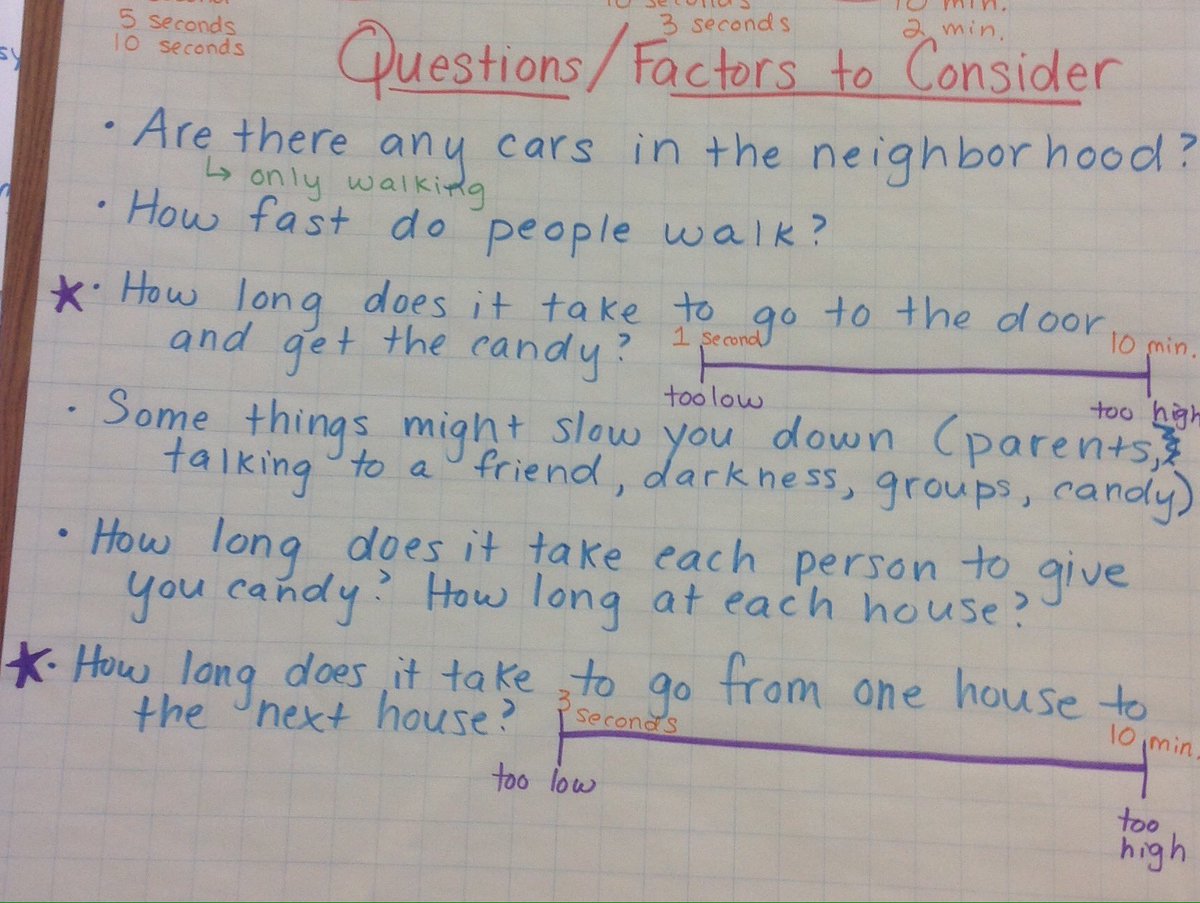 5 seconds
10 seconds
3 seconds
10 min.
2 min.
Questions/Factors to Consider
• Are there any cars in the neighborhood?
↳ only walking
• How fast do people walk?
★• How long does it take to go to the door
and get the candy?
1 second
10 min.
too low
too high
• Some things might slow you down (parents,
talking to a friend, darkness, groups, candy)
• How long does it take each person to give
you candy? How long at each house?
★• How long does it take to go from one house to
the next house?
3 seconds
10 min.
too low
too
high